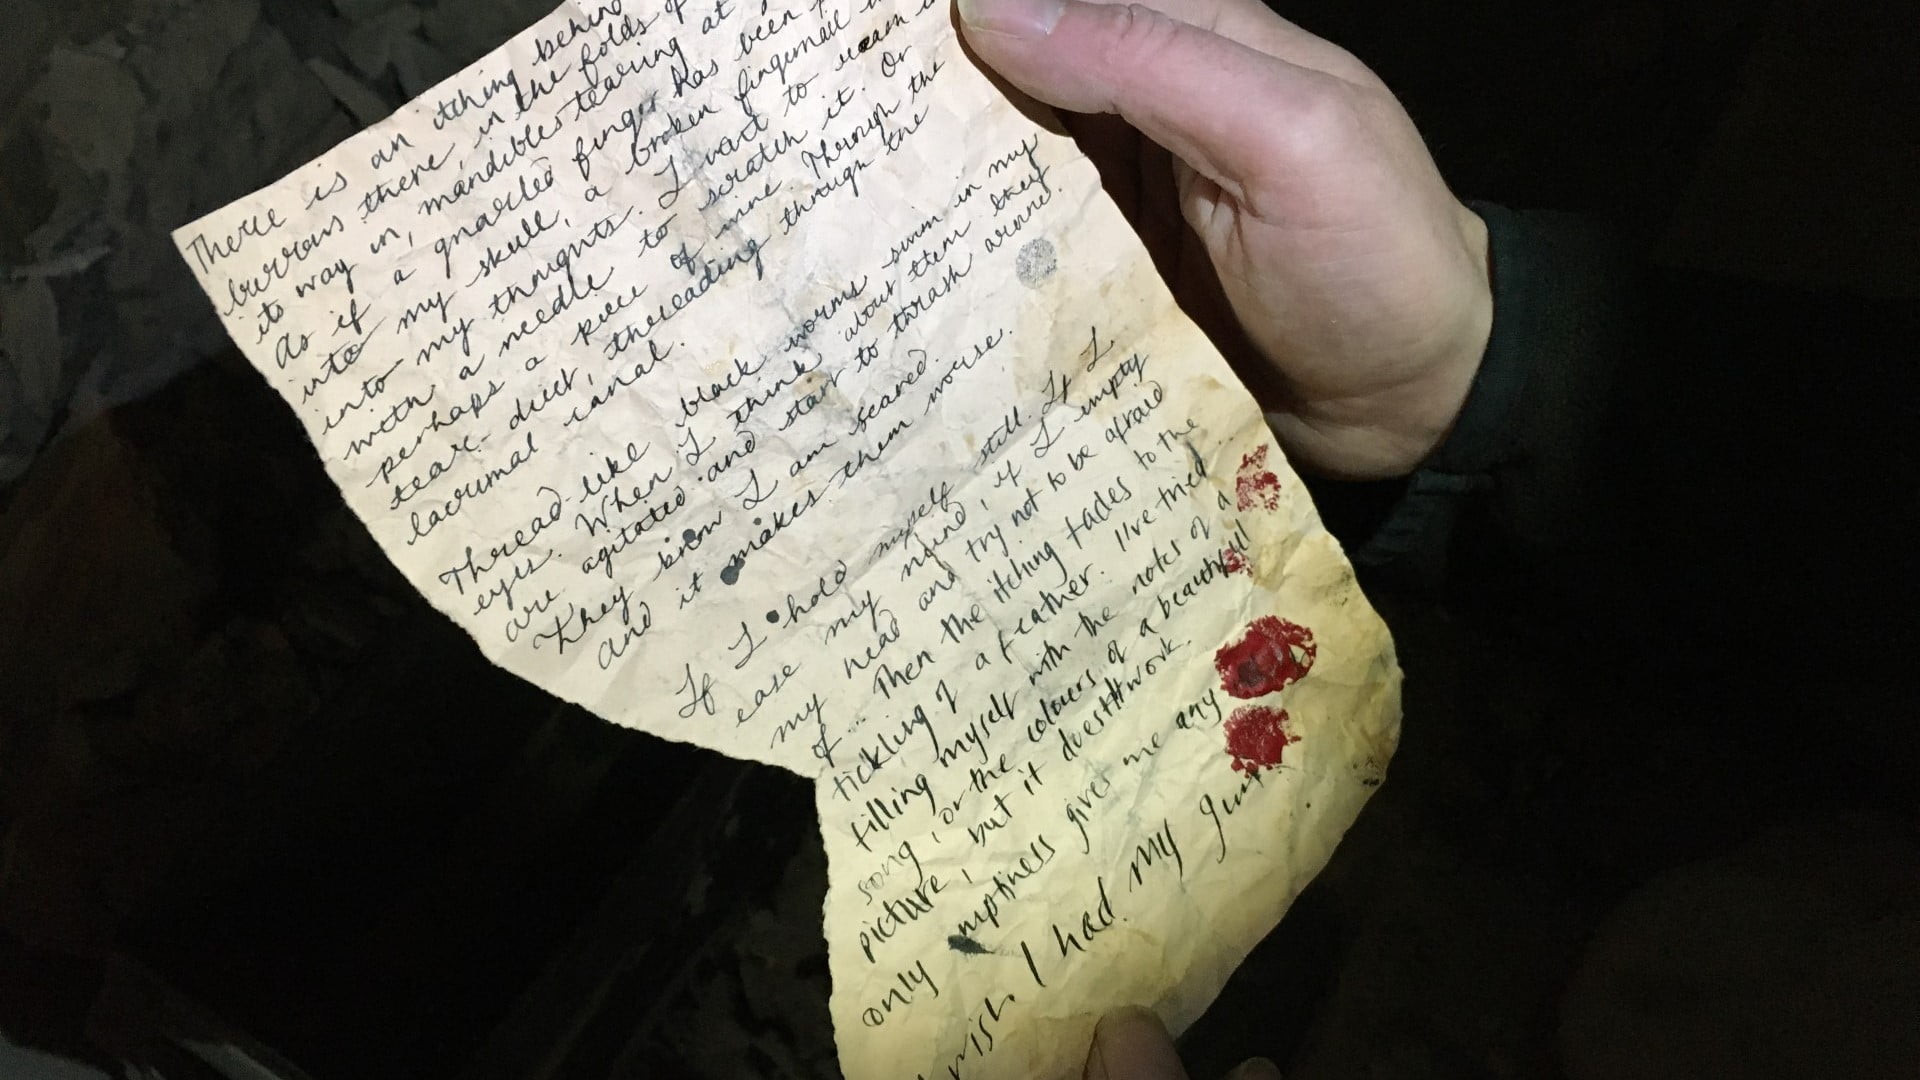 There is an itching behind
burrows there, in the folds of
its way in, mandibles tearing at
As if a gnarled finger has been
into my skull, a broken fingernail
into my thoughts. I want to ream
with a needle to scratch it. Or
perhaps a piece of wire. Through the
tear-duct, threading through the
lacrimal canal.
Thread-like black worms swim in my
eyes. When I think about them they
are agitated and start to thrash around.
They know I am scared.
and it makes them worse.
If I hold myself still. If I
ease my mind, if I empty
my head and try not to be afraid
of... Then the itching fades to the
tickling of a feather. I've tried
filling myself with the notes of a
song, or the colours of a beautiful
picture, but it doesn't work.
only emptiness gives me any
wish I had my gun.